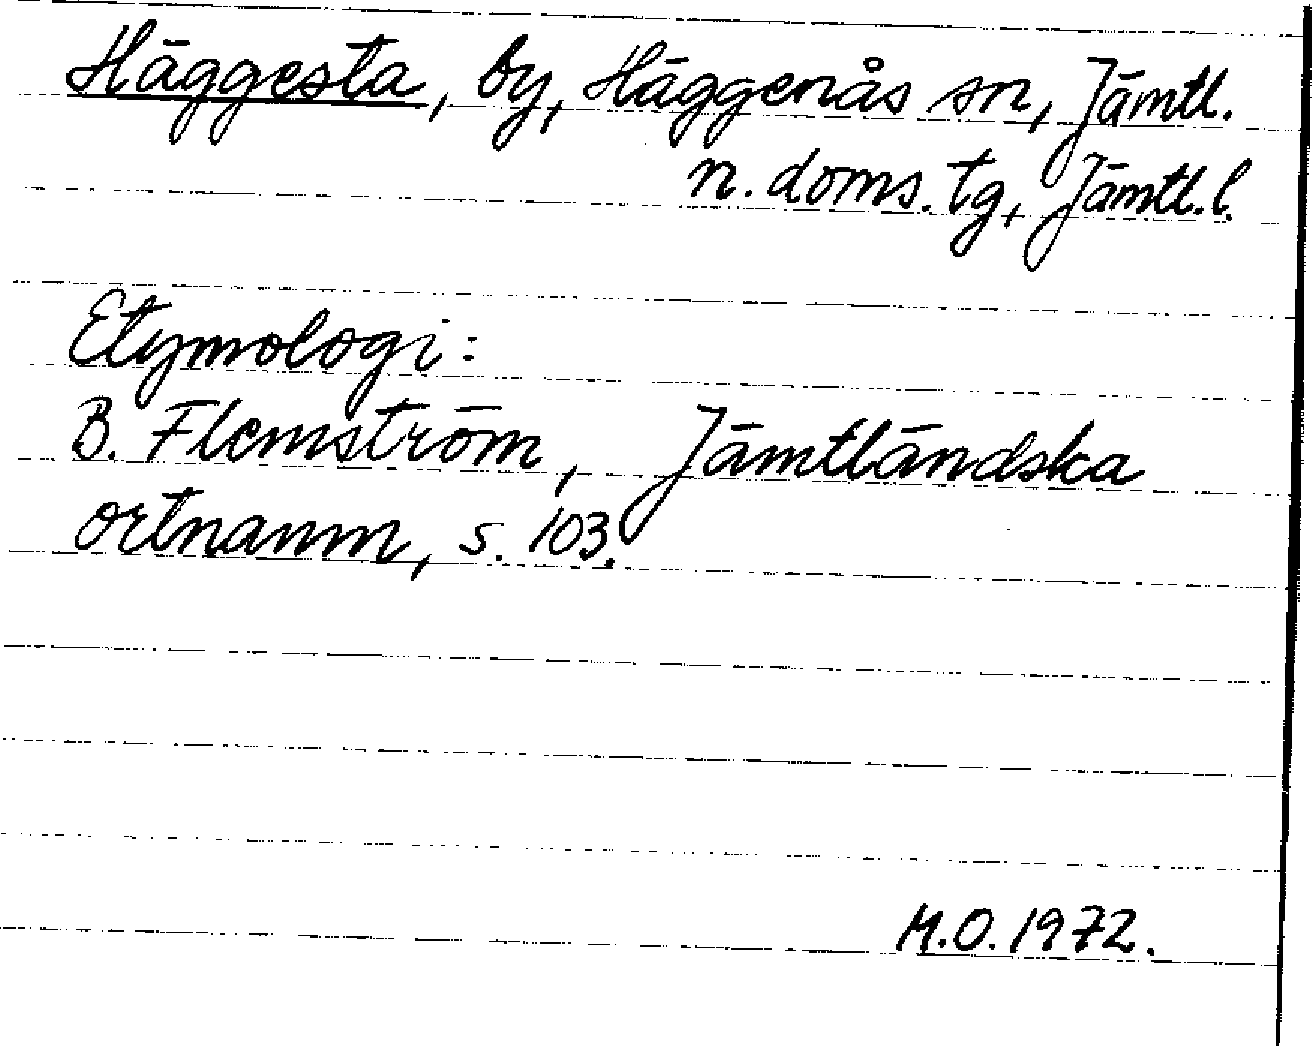 Häggesta, by, Häggenås sn, Jämtl.
n. doms. tg, Jämtl. l.
Etymologi:
B. Flemström, Jämtländska
ortnamn, s. 103.
M.O. 1972.